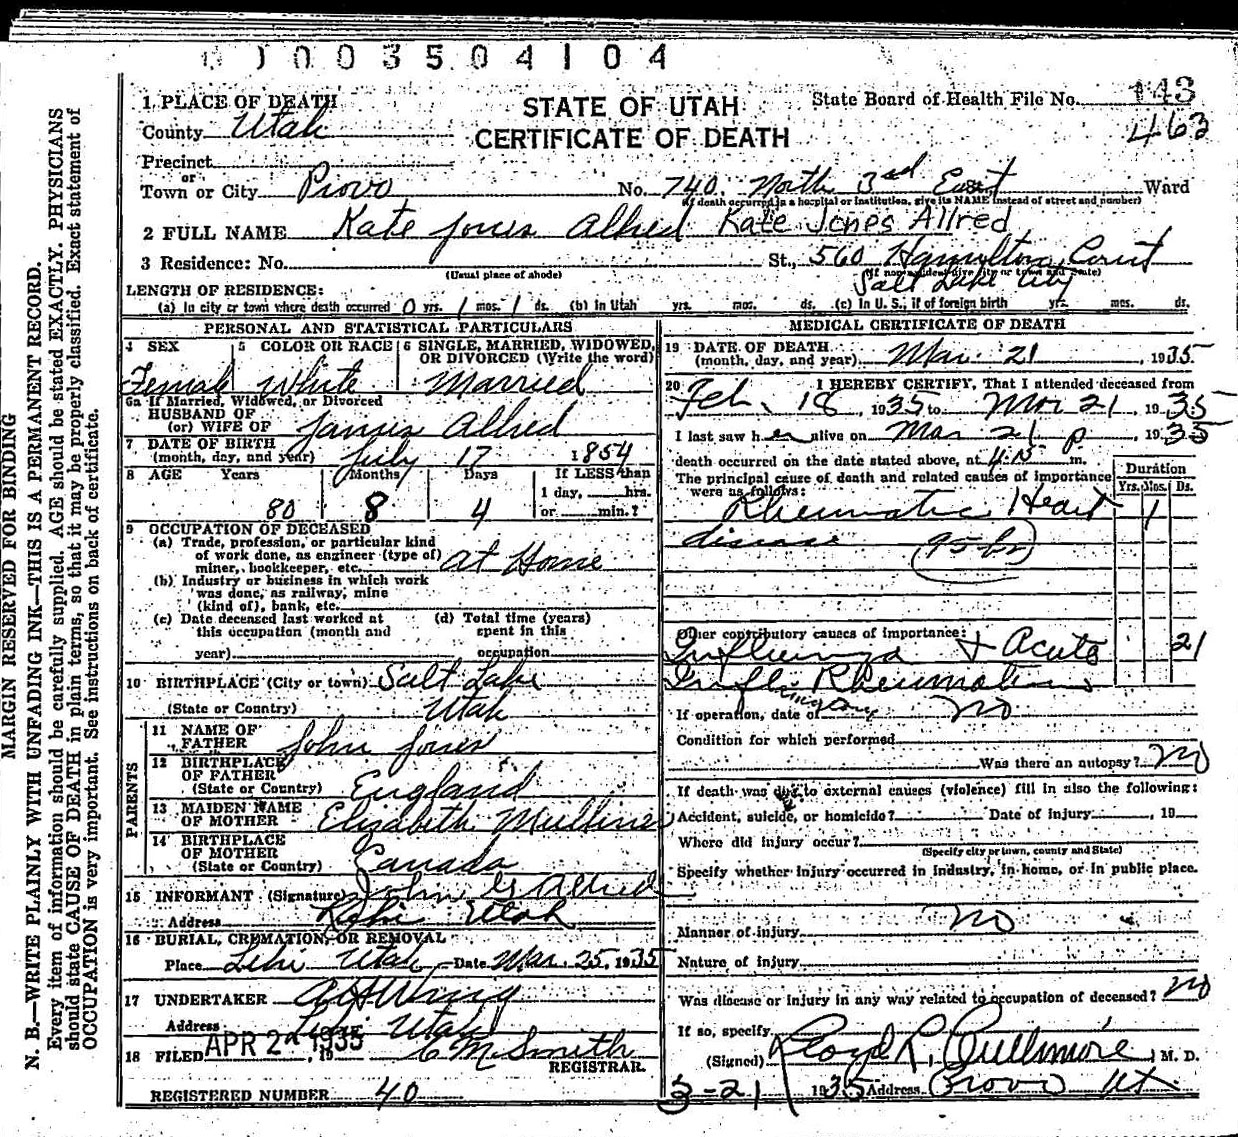 0 1 0 0 3 5 0 4 1 0 4
MARGIN RESERVED FOR BINDING
N. B.—WRITE PLAINLY WITH UNFADING INK—THIS IS A PERMANENT RECORD.
Every item of information should be carefully supplied. AGE should be stated EXACTLY. PHYSICIANS
should state CAUSE OF DEATH in plain terms, so that it may be properly classified. Exact statement of
OCCUPATION is very important. See instructions on back of certificate.
STATE OF UTAH
CERTIFICATE OF DEATH
State Board of Health File No. 143
463
1 PLACE OF DEATH
County Utah
Precinct
or
Town or City Provo No. 740 North 3rd East Ward
(If death occurred in a hospital or institution, give its NAME instead of street and number)
2 FULL NAME Kate Jones Allred Kate Jones Allred
3 Residence: No. St., 560 Hamilton Court
(Usual place of abode) (If nonresident give city or town and State)
Salt Lake City
LENGTH OF RESIDENCE:
(a) In city or town where death occurred 0 yrs. 1 mos. 1 ds. (b) in Utah yrs. mos. ds. (c) In U. S., if of foreign birth yrs. mos. ds.
PERSONAL AND STATISTICAL PARTICULARS
4 SEX Female
5 COLOR OR RACE White
6 SINGLE, MARRIED, WIDOWED, OR DIVORCED (Write the word) Married
6a If Married, Widowed, or Divorced
HUSBAND OF
(or) WIFE OF James Allred
7 DATE OF BIRTH
(month, day, and year) July 17 1854
8 AGE Years Months Days If LESS than
80 8 4 1 day, hrs.
or min.?
9 OCCUPATION OF DECEASED
(a) Trade, profession, or particular kind
of work done, as engineer (type of)
miner, bookkeeper, etc. at Home
(b) Industry or business in which work
was done, as railway, mine
(kind of), bank, etc.
(c) Date deceased last worked at
this occupation (month and
year)
(d) Total time (years)
spent in this
occupation
10 BIRTHPLACE (City or town) Salt Lake
(State or Country) Utah
PARENTS
11 NAME OF
FATHER John Jones
12 BIRTHPLACE
OF FATHER
(State or Country) England
13 MAIDEN NAME
OF MOTHER Elizabeth Mulliner
14 BIRTHPLACE
OF MOTHER
(State or Country) Canada
15 INFORMANT (Signature) John G Allred
Address Lehi Utah
16 BURIAL, CREMATION, OR REMOVAL
Place Lehi Utah Date Mar. 25, 1935
17 UNDERTAKER A H Wing
Address Lehi Utah
18 FILED APR 2nd 1935, 19 C M Smith
REGISTRAR.
REGISTERED NUMBER 40
MEDICAL CERTIFICATE OF DEATH
19 DATE OF DEATH
(month, day, and year) Mar. 21, 1935
20 I HEREBY CERTIFY, That I attended deceased from
Feb. 18, 1935 to Mar 21, 1935
I last saw her alive on Mar 21, 1935
death occurred on the date stated above, at 4:15 p m.
The principal cause of death and related causes of importance
were as follows:
Duration
Yrs. Mos. Ds.
Rheumatic Heart 1
disease 95 b2
Other contributory causes of importance:
Influenza + Acute 21
Infl. Rheumatism
If operation, date of no
Condition for which performed
Was there an autopsy? no
If death was due to external causes (violence) fill in also the following:
Accident, suicide, or homicide? Date of injury , 19
Where did injury occur?
(Specify city or town, county and State)
Specify whether injury occurred in industry, in home, or in public place.
no
Manner of injury
Nature of injury
Was disease or injury in any way related to occupation of deceased? no
If so, specify
(Signed) Lloyd L. Cullimore, M. D.
3-21 1935 Address Provo Ut